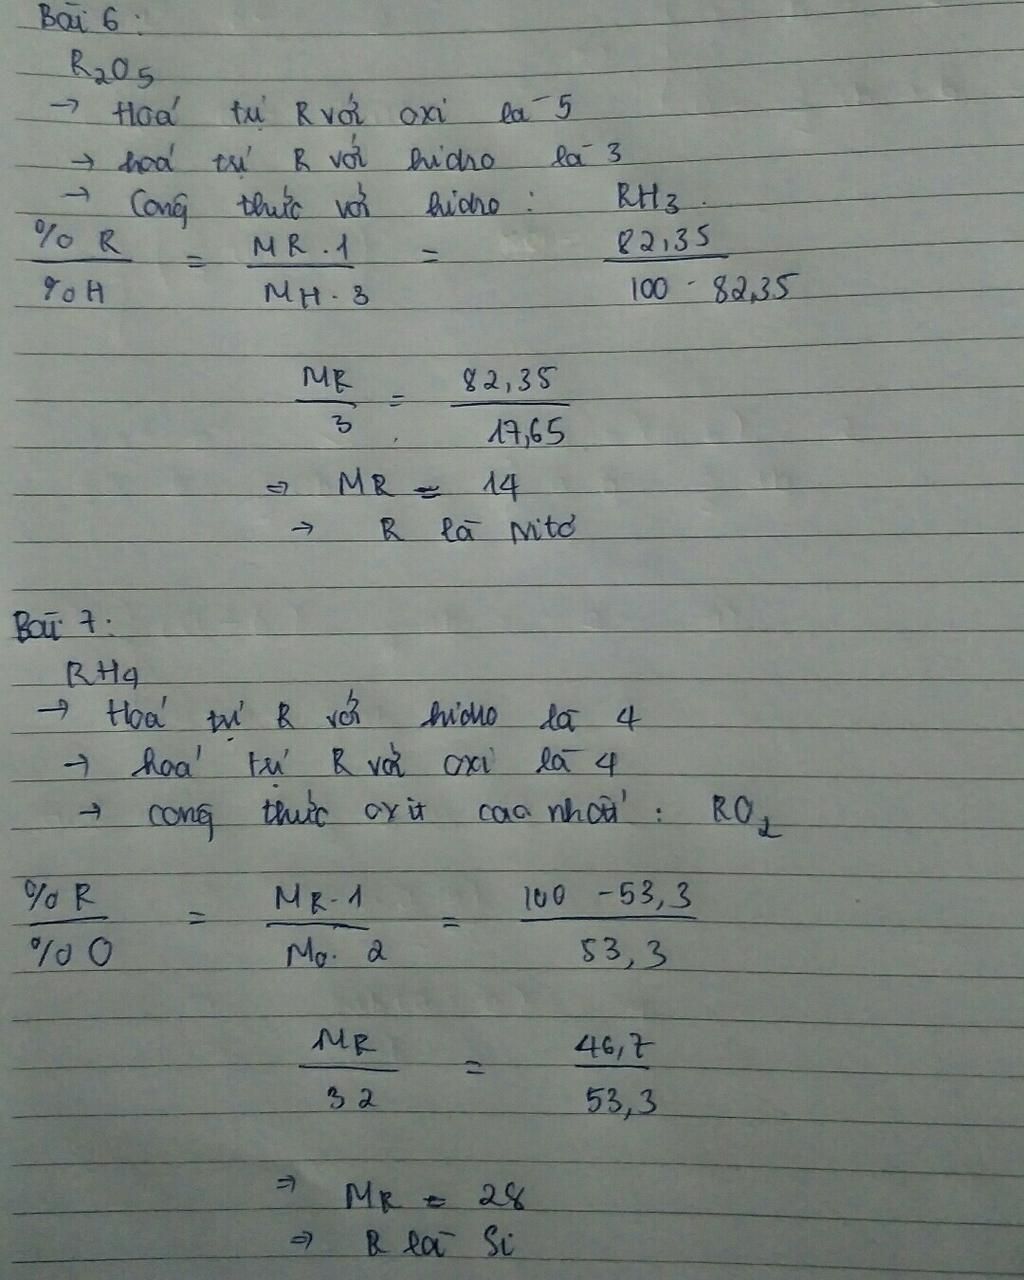 Bài 6:
R₂O₅
→ Hoá trị R với oxi là 5
→ hoá trị R với hidro là 3
→ Công thức với hidro: RH₃.
%R / %H = MR.1 / MH.3 = 82,35 / 100 - 82,35
MR / 3 = 82,35 / 17,65
⇒ MR = 14
→ R là Nitơ
Bài 7:
RH4
→ Hoá trị R với hidro là 4
→ hoá trị R với oxi là 4
→ công thức oxit cao nhất: RO₂
%R / %O = MR.1 / MO.2 = 100 - 53,3 / 53,3
MR / 32 = 46,7 / 53,3
⇒ MR = 28
⇒ R là Si